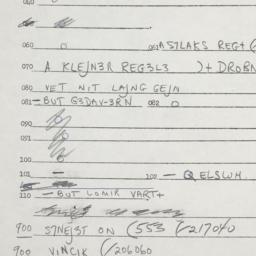 060 o 061 A STLAKS REG+(
070 A KLEJN3R REG3L3 )+ DROBN
080 VET NIT LAJNG GEJN
081 - BUT G3DAV-3RN 082 o
090
091
100
101 — 100 — Q ELSWH.
110 — BUT LOMIR VART+
900 STNEJST ON (553 (/217040
900 VINCIK (/206060